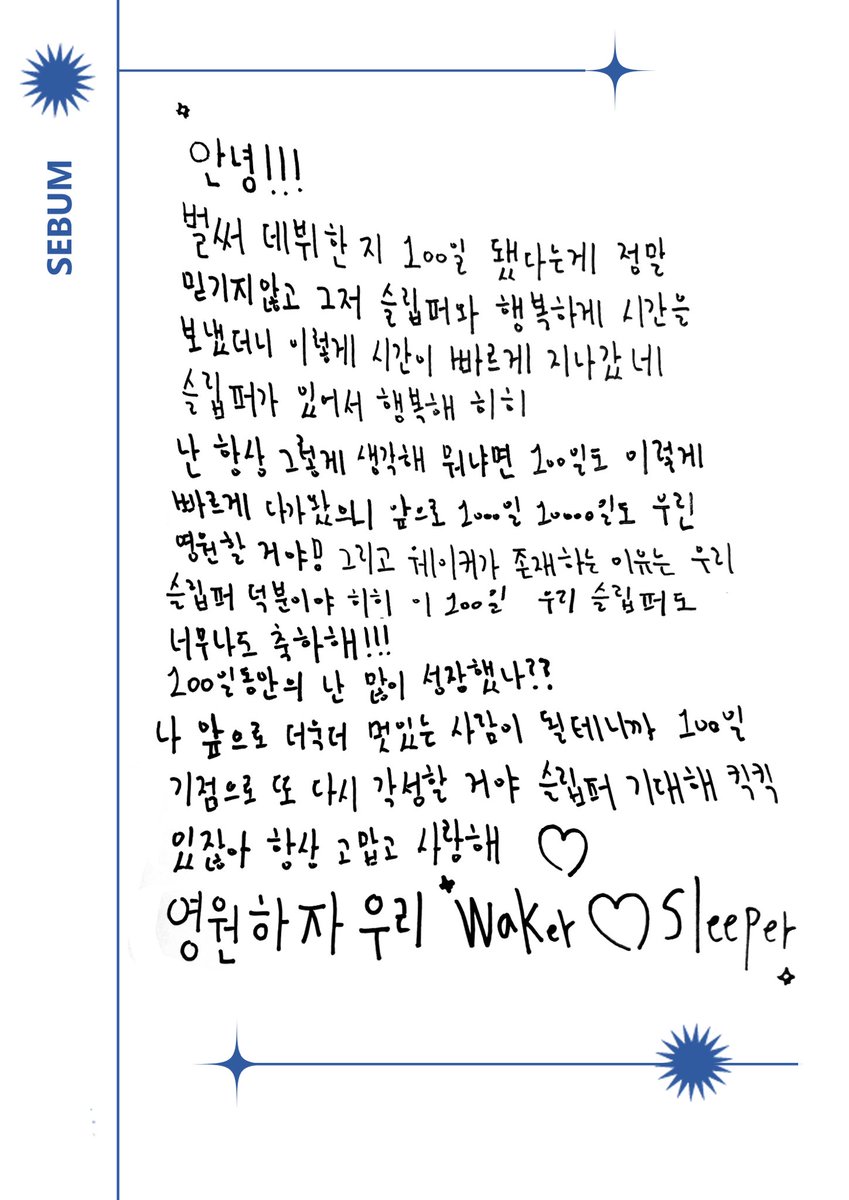 SEBUM
안녕!!!
벌써 데뷔한 지 100일 됐다는게 정말
믿기지않고 그저 슬립퍼와 행복하게 시간을
보냈더니 이렇게 시간이 빠르게 지나갔네
슬립퍼가 있어서 행복해 히히
난 항상 그렇게 생각해 뭐냐면 100일도 이렇게
빠르게 다가왔으니 앞으로 1000일 10000일도 우린
영원할 거야!! 그리고 웨이커가 존재하는 이유는 우리
슬립퍼 덕분이야 히히 이 100일 우리 슬립퍼도
너무나도 축하해!!!
100일동안의 난 많이 성장했나??
나 앞으로 더욱더 멋있는 사람이 될테니까 100일
기점으로 또 다시 각성할 거야 슬립퍼 기대해 킥킥
있잖아 항상 고맙고 사랑해 ♡
영원하자 우리 Waker ♡ Sleeper